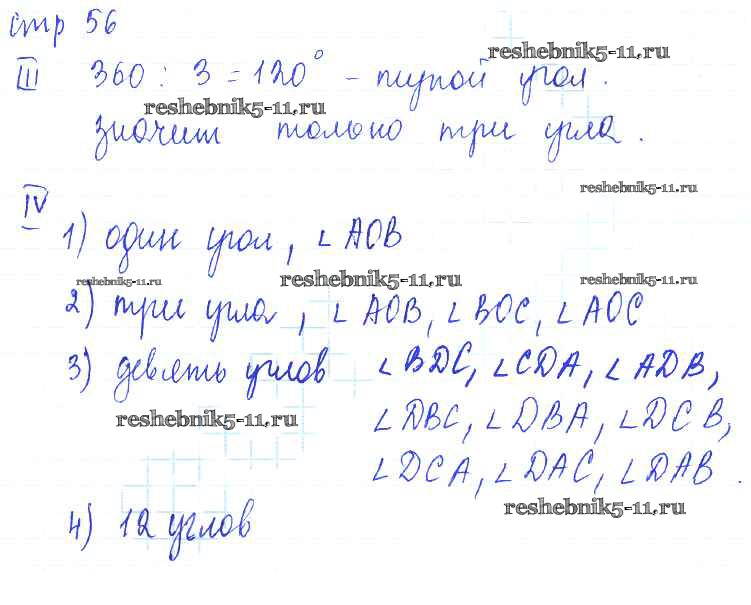 стр 56
reshebnik5-11.ru
III 360 : 3 = 120° - тупой угол.
reshebnik5-11.ru
значит только три угла.
reshebnik5-11.ru
IV
1) один угол, ∠AOB
reshebnik5-11.ru reshebnik5-11.ru reshebnik5-11.ru
2) три угла, ∠AOB, ∠BOC, ∠AOC
3) девять углов ∠BDC, ∠CDA, ∠ADB,
reshebnik5-11.ru ∠DBC, ∠DBA, ∠DCB,
∠DCA, ∠DAC, ∠DAB.
reshebnik5-11.ru
4) 12 углов